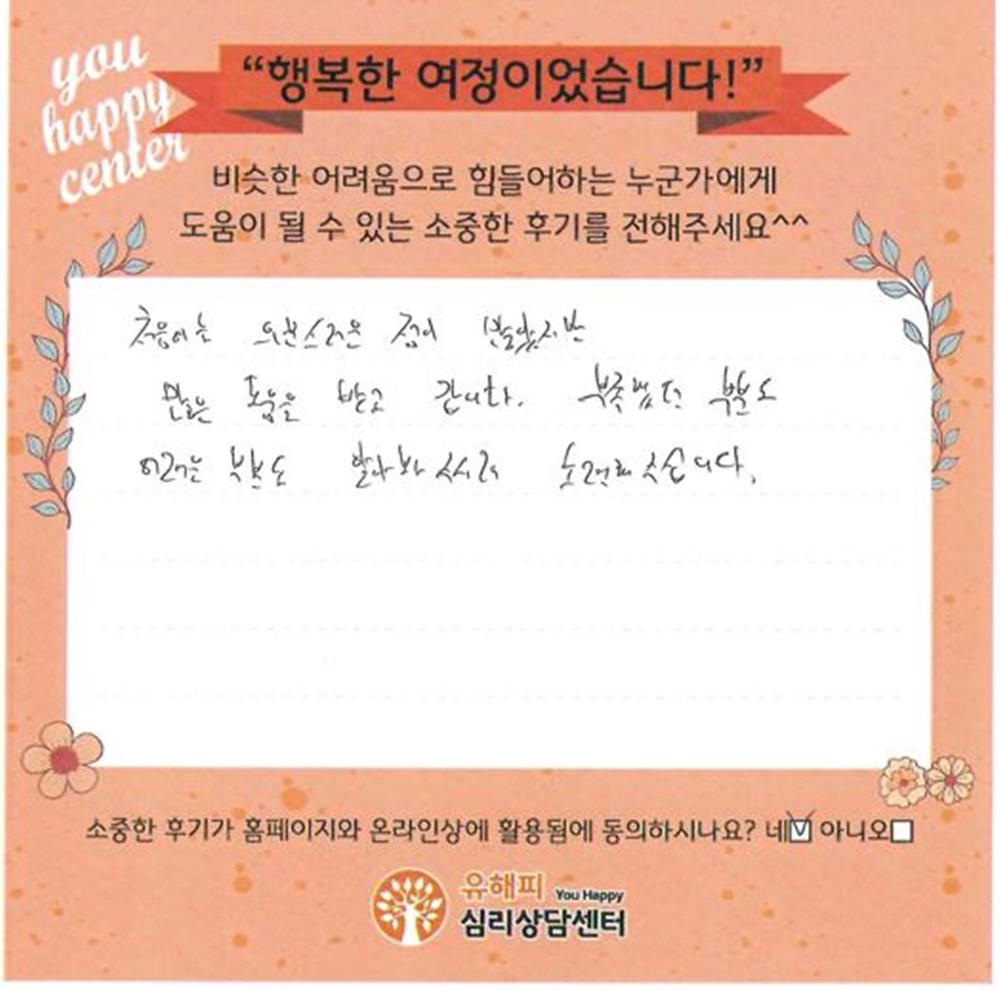 you
happy
center
“행복한 여정이었습니다!”
비슷한 어려움으로 힘들어하는 누군가에게
도움이 될 수 있는 소중한 후기를 전해주세요^^
처음에는 의심스러운 점이 많았지만
많은 도움을 받고 갑니다. 부족했던 부분도
어려운 부분도 알아봐 주시려 노력해주십니다.
소중한 후기가 홈페이지와 온라인상에 활용됨에 동의하시나요? 네 아니오
유해피 You Happy
심리상담센터